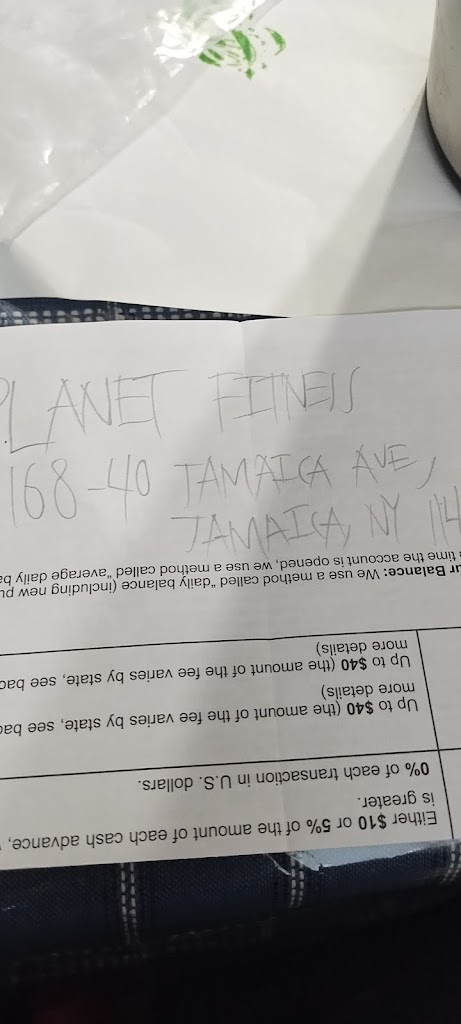 PLANET FITNESS
168-40 JAMAICA AVE,
JAMAICA, NY 114
Either $10 or 5% of the amount of each cash advance,
is greater.
0% of each transaction in U.S. dollars.
Up to $40 (the amount of the fee varies by state, see bac
more details)
Up to $40 (the amount of the fee varies by state, see bac
more details)
ur Balance: We use a method called "daily balance (including new pu
time the account is opened, we use a method called "average daily ba